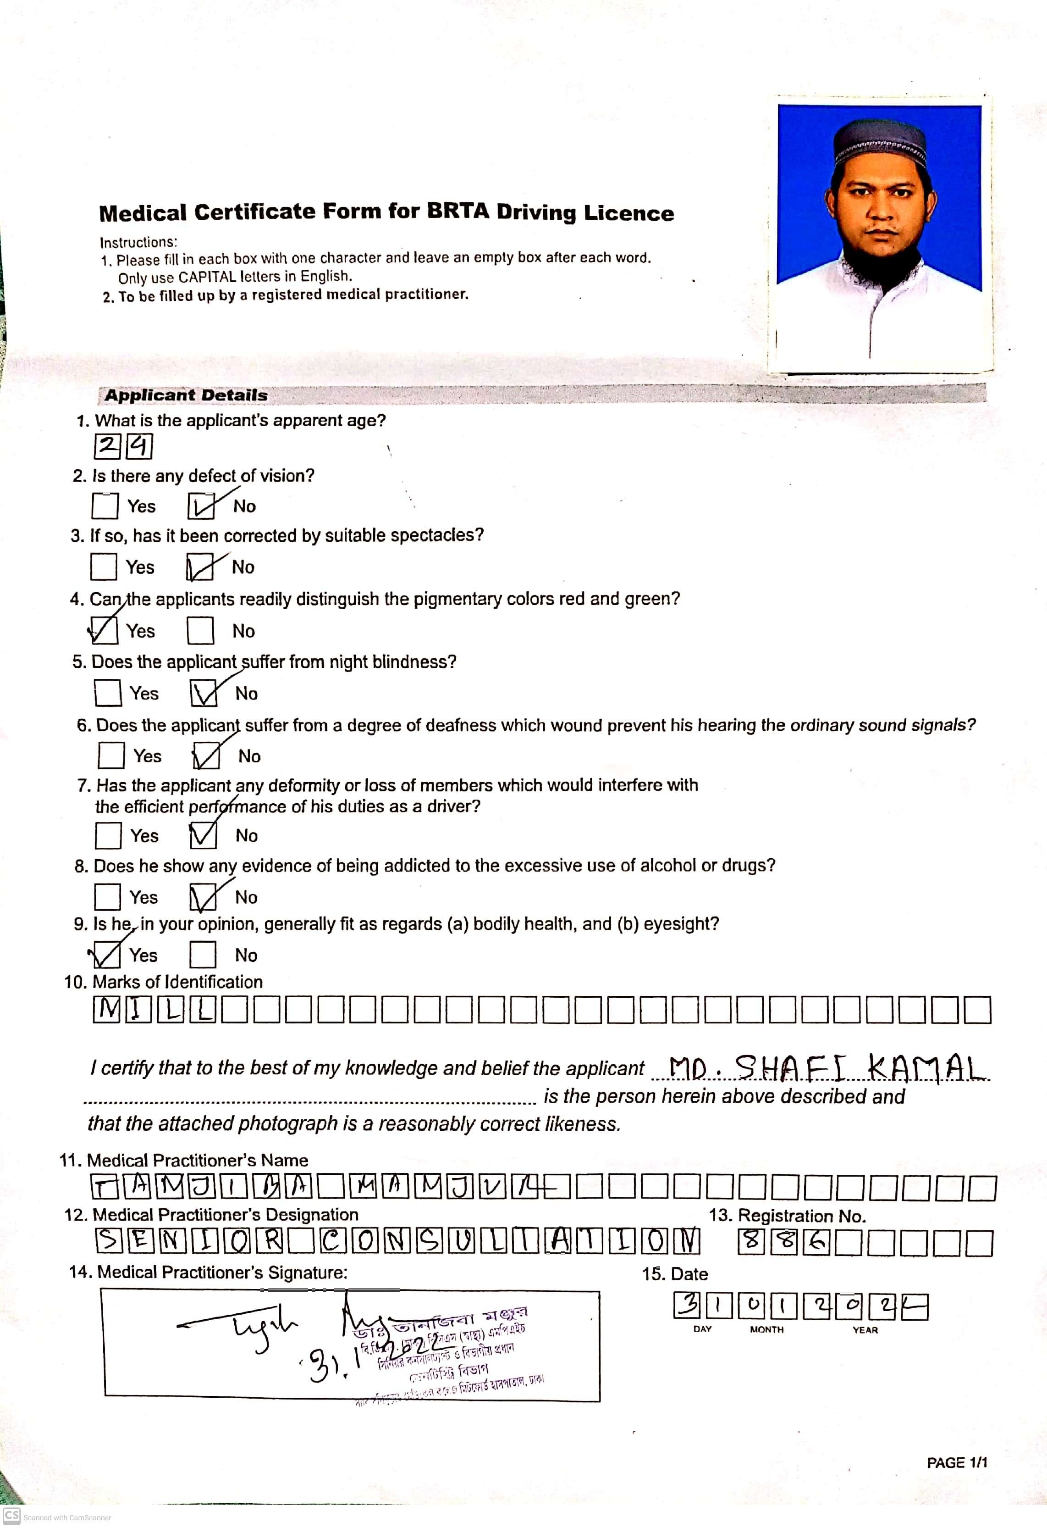 Medical Certificate Form for BRTA Driving Licence
Instructions:
1. Please fill in each box with one character and leave an empty box after each word.
Only use CAPITAL letters in English.
2. To be filled up by a registered medical practitioner.
Applicant Details
1. What is the applicant's apparent age?
24
2. Is there any defect of vision?
Yes No
3. If so, has it been corrected by suitable spectacles?
Yes No
4. Can the applicants readily distinguish the pigmentary colors red and green?
Yes No
5. Does the applicant suffer from night blindness?
Yes No
6. Does the applicant suffer from a degree of deafness which wound prevent his hearing the ordinary sound signals?
Yes No
7. Has the applicant any deformity or loss of members which would interfere with
the efficient performance of his duties as a driver?
Yes No
8. Does he show any evidence of being addicted to the excessive use of alcohol or drugs?
Yes No
9. Is he, in your opinion, generally fit as regards (a) bodily health, and (b) eyesight?
Yes No
10. Marks of Identification
MILL
I certify that to the best of my knowledge and belief the applicant MD. SHAFI KAMAL
is the person herein above described and
that the attached photograph is a reasonably correct likeness.
11. Medical Practitioner's Name
TAMJIBA
12. Medical Practitioner's Designation 13. Registration No.
SENIOR CONSULTATION 886
14. Medical Practitioner's Signature: 15. Date
3101202
DAY MONTH YEAR
ডাঃ তানজিবা মঞ্জুর
31.1.2022
বিভাগীয় প্রধান
ডেনটিস্ট্রি বিভাগ
মিটফোর্ড হাসপাতাল, ঢাকা
PAGE 1/1
CS Scanned with CamScanner